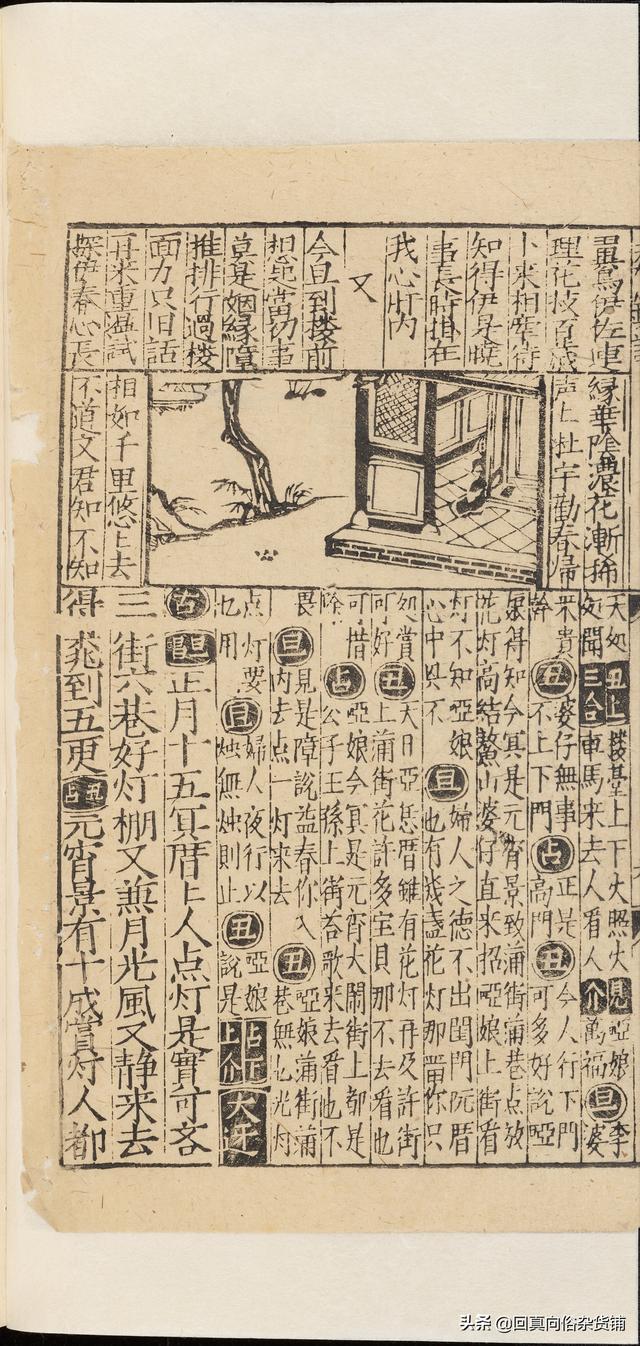 理花枝百岁
卜来相牽待
知得伊是晓
事長時掛在
我心肝内
又
今旦到楼前
想是當初事
莫是姻緣障
推排行過楼
面力只旧話
再来重孟試
探伊春心長
緣華陰濃花漸稀
声上杜宇勤春帰
相如千里悠上去
不道文君知不知
天処丑上楼基上下火照火見啞娘旦李
処聞三合車馬来去人看人介萬福婆
米貴丑婆仔無事占正是丑今人行下門
不上下門高門可多好説啞
娘得知今冥是元宵景致蒲街蒲巷点放
花灯高結鰲山婆仔直来招啞娘上街看
灯不知啞娘旦婦人之德不出閨門阮厝
心中與不也有幾盞花灯那罢你只
処賞丑大日亞恁厝雖有花灯再及許街
可好上蒲街花許多宝貝那不去看也
可惜占啞娘今冥是元宵大鬧街上都是
公子王孫上街荅歌来去看也不
畏旦見是障説益春你入丑啞娘蒲街蒲
内去点一灯来去巷無乚光灼
点灯要旦婦人夜行以丑啞娘占正大迓
乜用烛無烛則止説是上介
旦正月十五冥厝上人点灯是實可吝
占三街六巷好灯棚又兼月光風又静来去
得桃到五更丑占元宵景有十成賞灯人都
头条 @回真向俗杂货铺